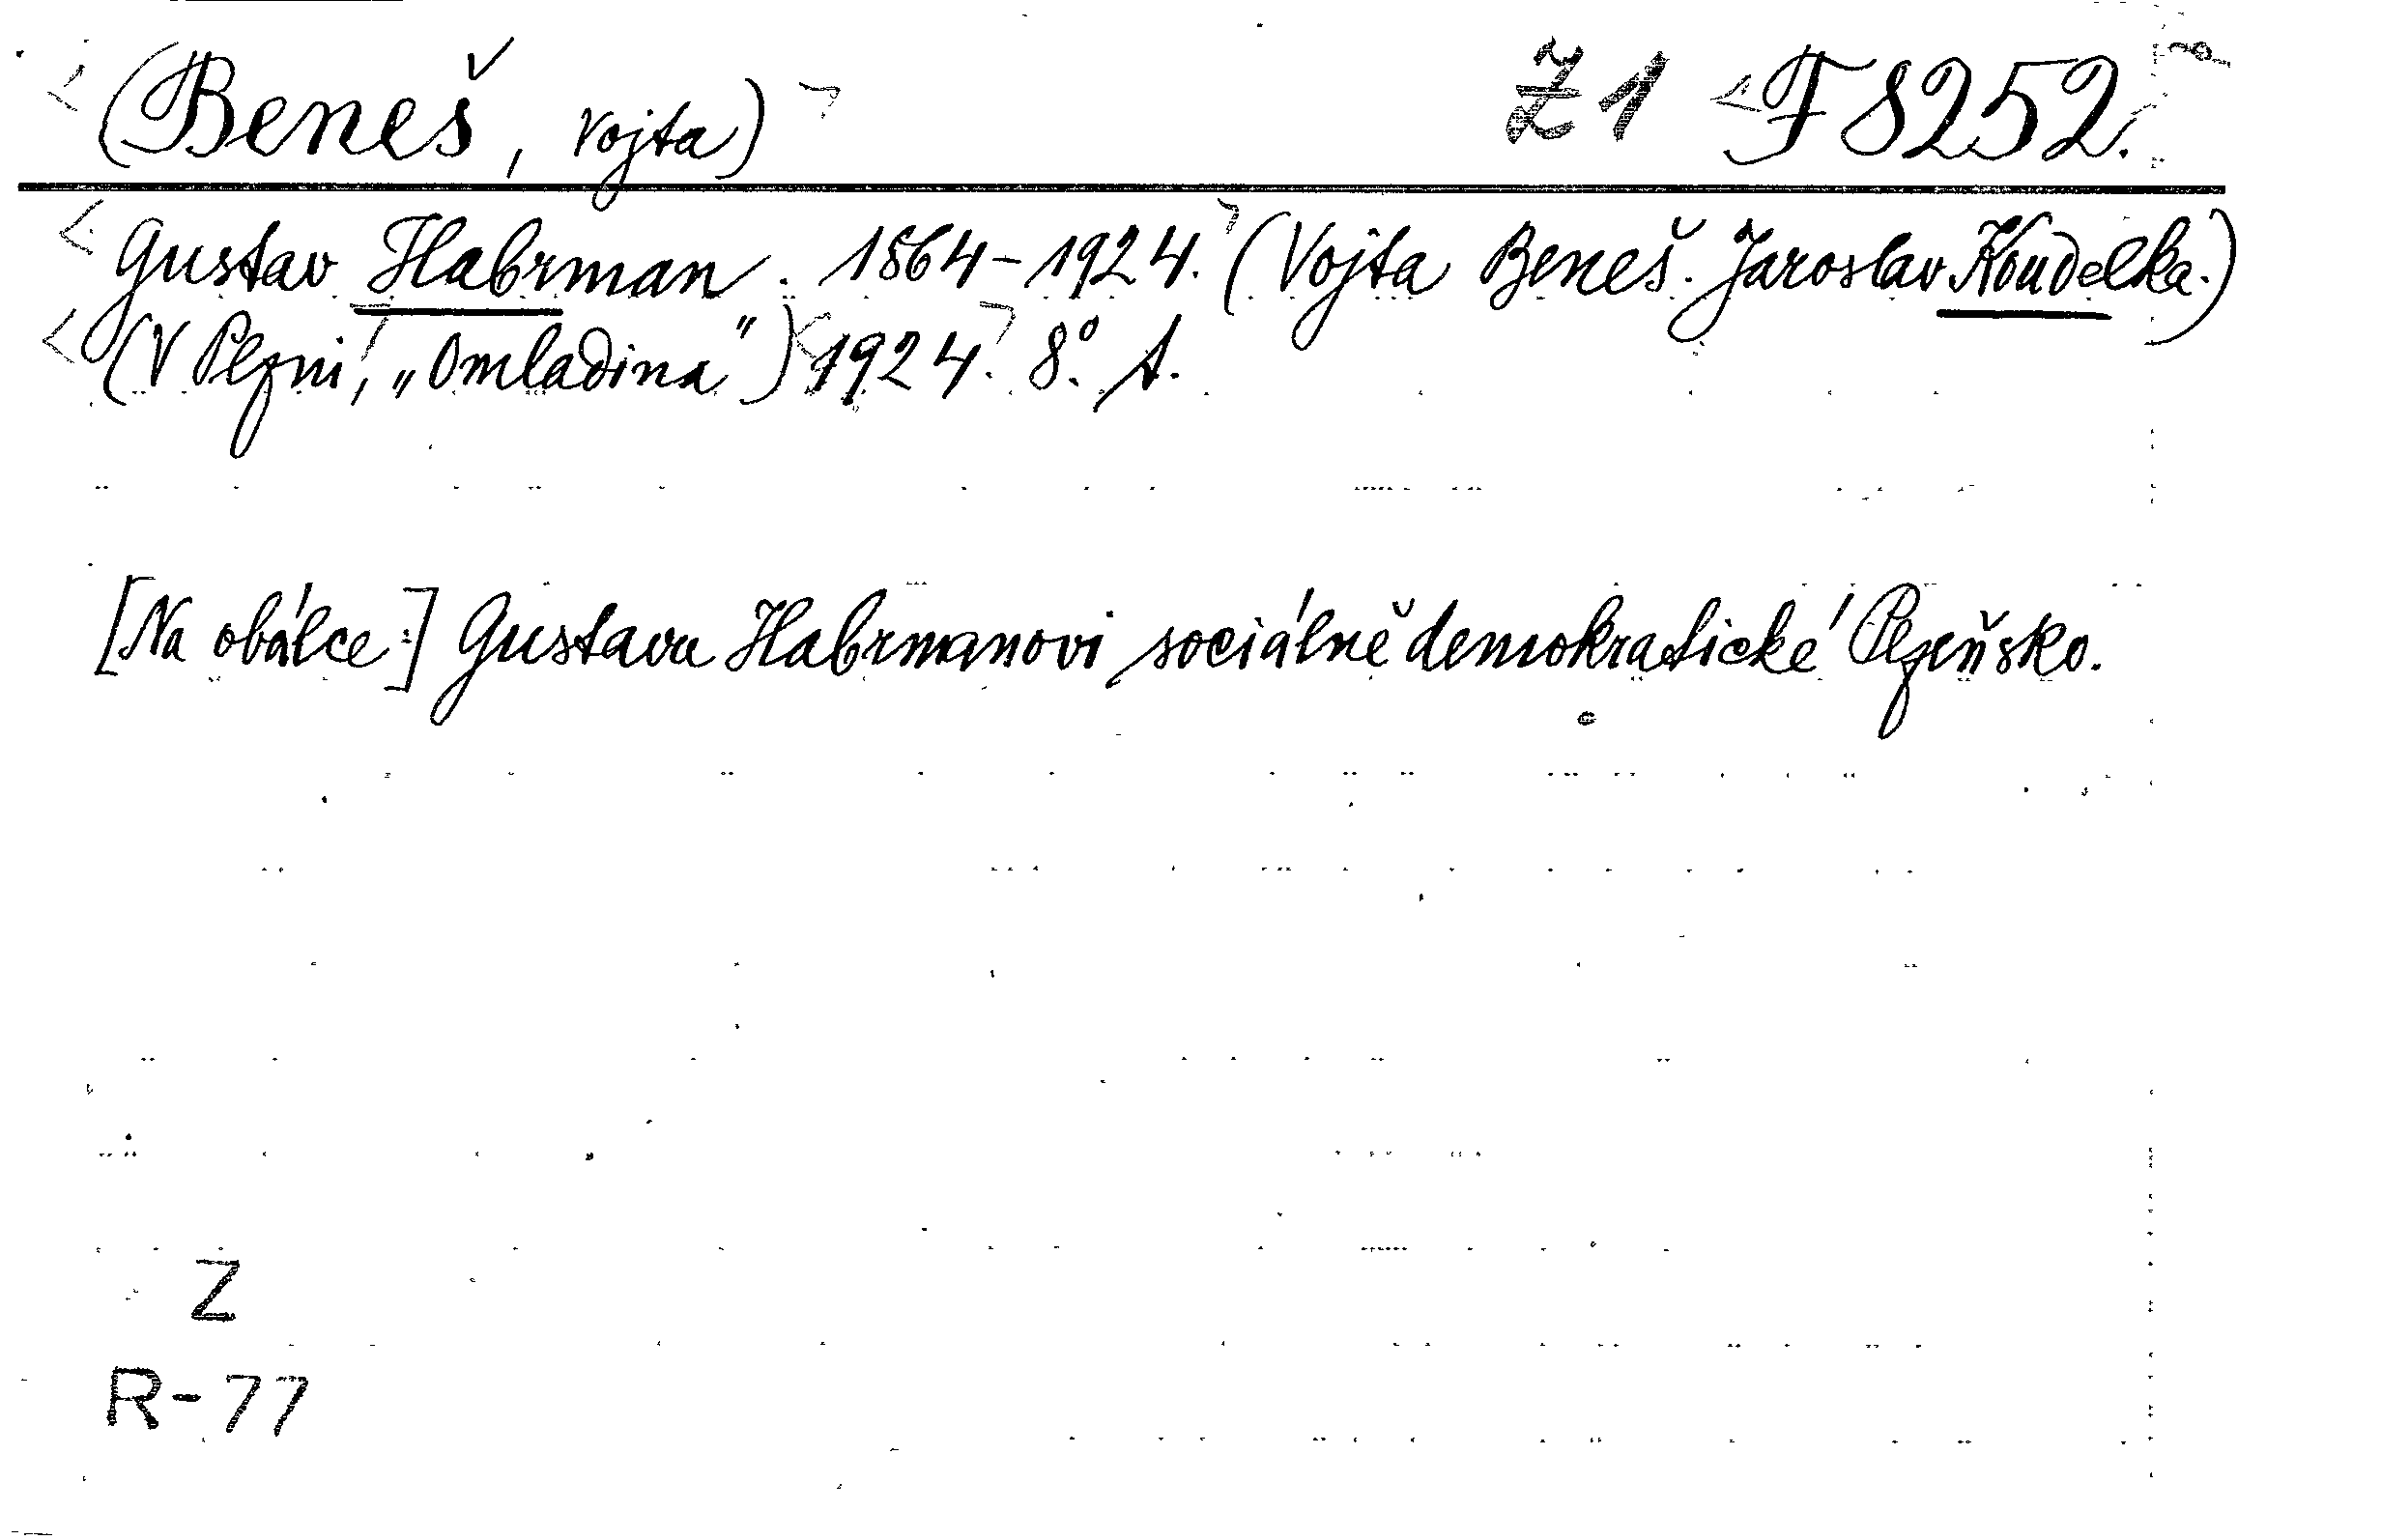 (Beneš, Vojta) Z 1 F 8252.
Gustav Habrman. 1864-1924. (Vojta Beneš. Jaroslav Koudelka.)
(V Plzni, „Omladina") 1924. 8°. A.
[Na obálce:] Gustavu Habrmanovi sociálně demokratické Plzeňsko.
Z
R-77